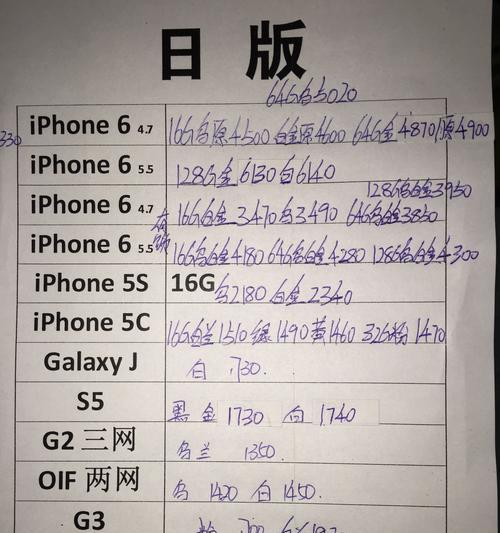 日版
64G乌5020
iPhone 6 4.7 16G乌原4500白金原4600 64G金4870/原4900
iPhone 6 5.5 128G金6130白6140
128G乌白金3950
iPhone 6 4.7 16G白金3470乌3490 64G乌白金3850
有锁
iPhone 6 5.5 16G乌白金4180 64G乌白金4280 128G乌白金4300
iPhone 5S 16G乌2180 白金2340
iPhone 5C 16G白兰1510绿1490黄1460 32G粉1470
Galaxy J 白 730.
S5 黑金1730 白1740
G2 三网 乌兰 1350.
OIF 两网 乌 1420 白1450.
G3